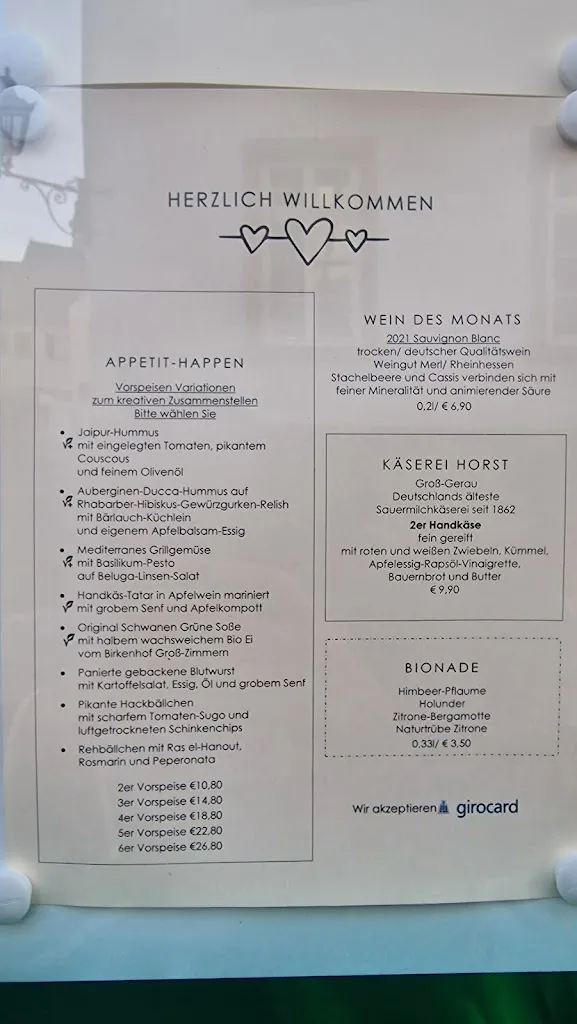 HERZLICH WILLKOMMEN
APPETIT-HAPPEN
Vorspeisen Variationen
zum kreativen Zusammenstellen
Bitte wählen Sie
• Jaipur-Hummus
mit eingelegten Tomaten, pikantem
Couscous
und feinem Olivenöl
• Auberginen-Ducca-Hummus auf
Rhabarber-Hibiskus-Gewürzgurken-Relish
mit Bärlauch-Küchlein
und eigenem Apfelbalsam-Essig
• Mediterranes Grillgemüse
mit Basilikum-Pesto
auf Beluga-Linsen-Salat
• Handkäs-Tatar in Apfelwein mariniert
mit grobem Senf und Apfelkompott
• Original Schwanen Grüne Soße
mit halbem wachsweichem Bio Ei
vom Birkenhof Groß-Zimmern
• Panierte gebackene Blutwurst
mit Kartoffelsalat, Essig, Öl und grobem Senf
• Pikante Hackbällchen
mit scharfem Tomaten-Sugo und
luftgetrockneten Schinkenchips
• Rehbällchen mit Ras el-Hanout,
Rosmarin und Peperonata
2er Vorspeise €10,80
3er Vorspeise €14,80
4er Vorspeise €18,80
5er Vorspeise €22,80
6er Vorspeise €26,80
WEIN DES MONATS
2021 Sauvignon Blanc
trocken/ deutscher Qualitätswein
Weingut Merl/ Rheinhessen
Stachelbeere und Cassis verbinden sich mit
feiner Mineralität und animierender Säure
0,2l/ € 6,90
KÄSEREI HORST
Groß-Gerau
Deutschlands älteste
Sauermilchkäserei seit 1862
2er Handkäse
fein gereift
mit roten und weißen Zwiebeln, Kümmel,
Apfelessig-Rapsöl-Vinaigrette,
Bauernbrot und Butter
€ 9,90
BIONADE
Himbeer-Pflaume
Holunder
Zitrone-Bergamotte
Naturtrübe Zitrone
0,33l/ € 3,50
Wir akzeptieren girocard